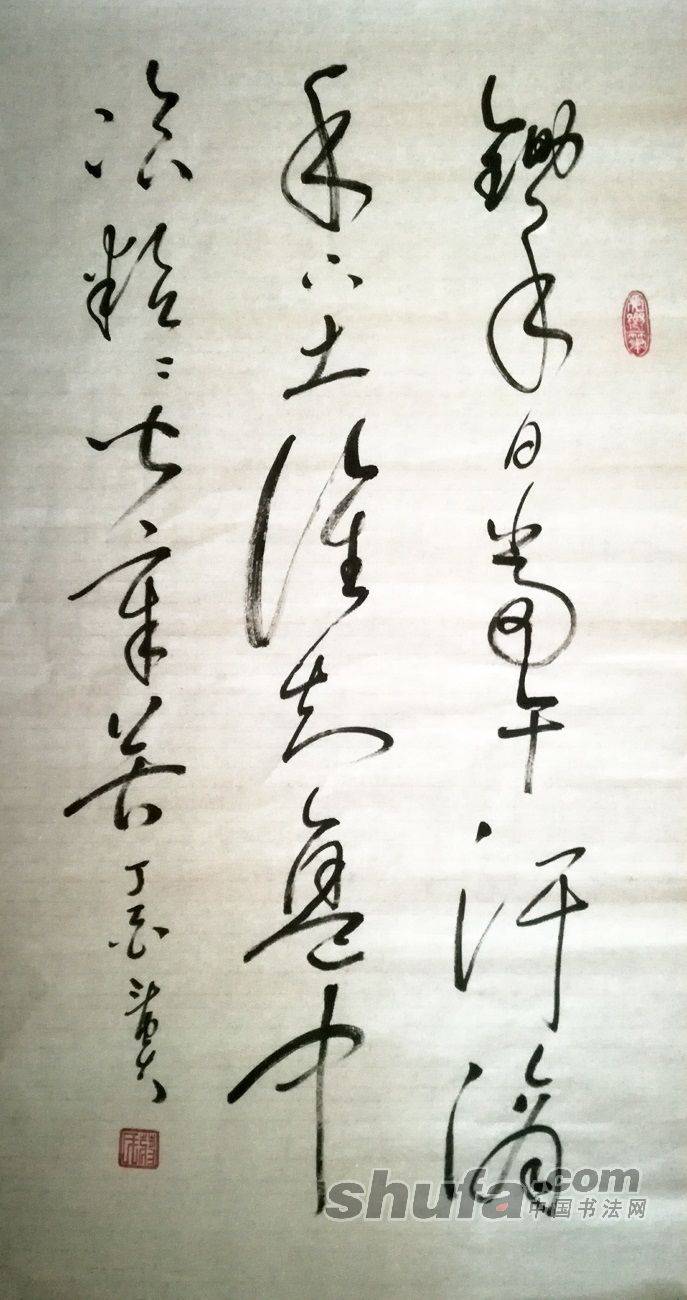 鋤禾日當午汗滴
禾下土誰知盤中
飡粒〻皆辛苦 丁酉
shufa.com
中国书法网